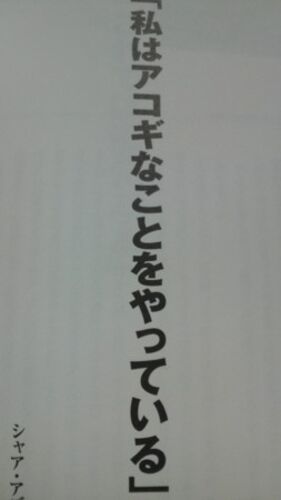 「私はアコギなことをやっている」
シャア・ア